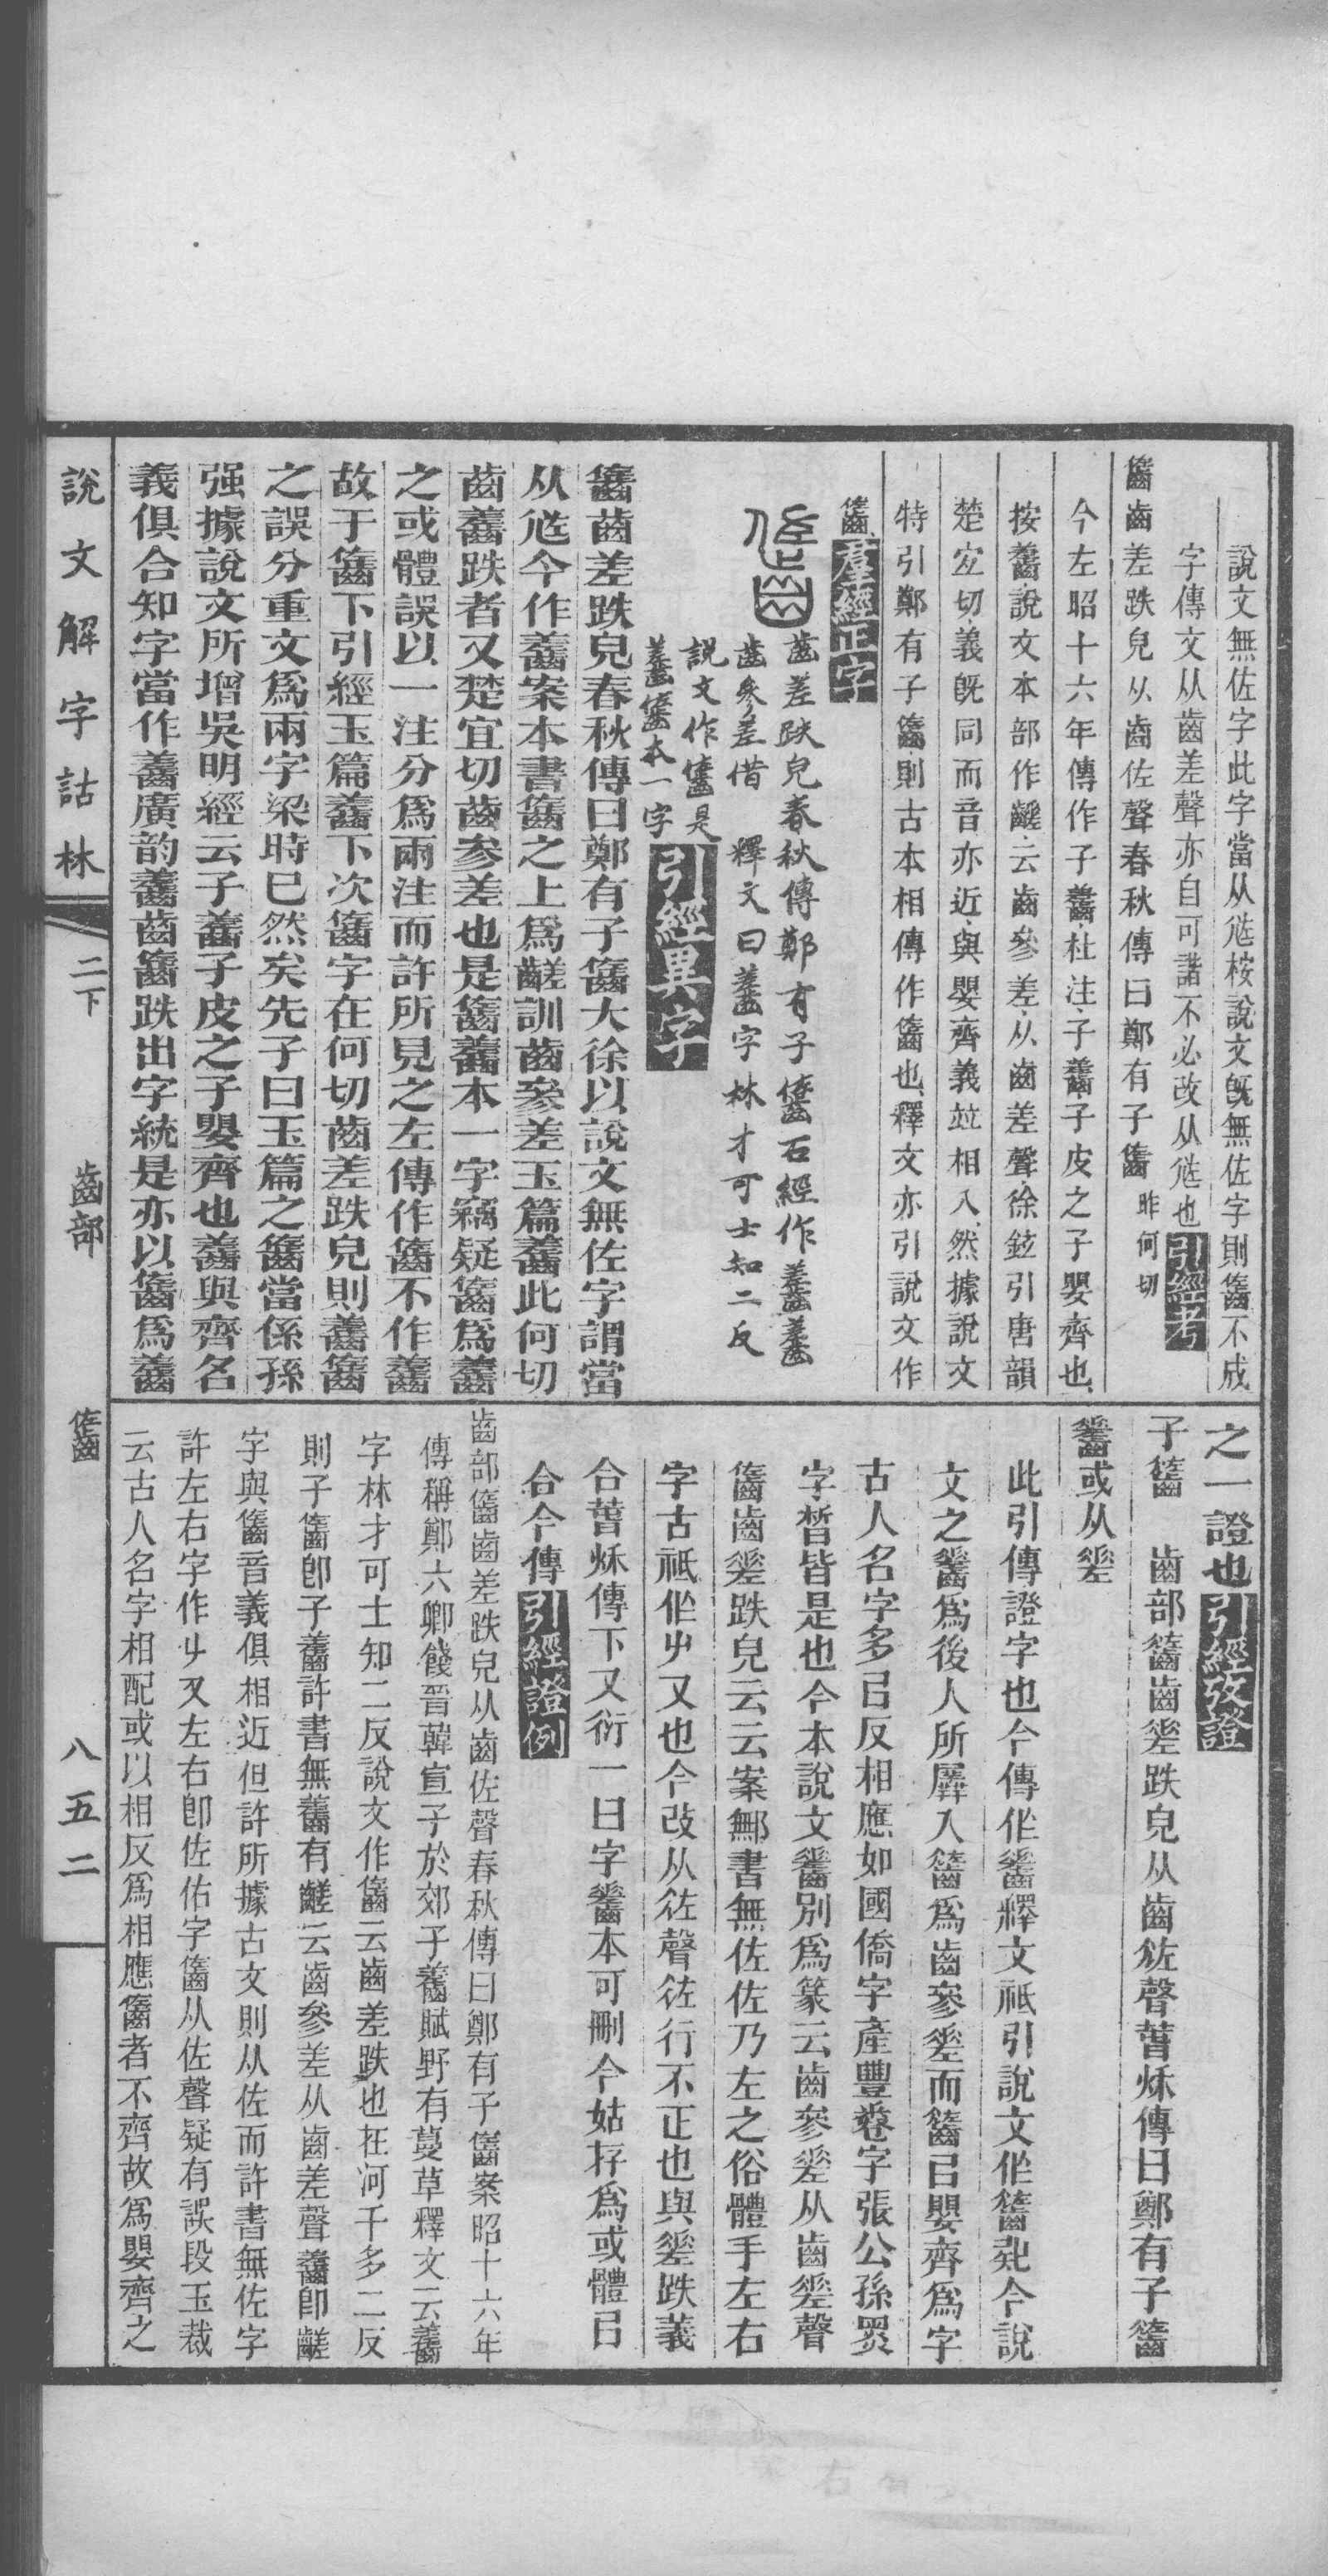 說文無佐字此字當从𡯛桉說文旣無佐字則⿱佐齒不成
字傳文从齒差聲亦自可諧不必改从𡯛也引經考
⿱佐齒齒差跌皃从齒佐聲春秋傳曰鄭有子⿱佐齒 昨何切
今左昭十六年傳作子齹杜注子齹子皮之子嬰齊也
按齹說文本部作⿰齒差云齒參差从齒差聲徐鉉引唐韻
楚宜切義旣同而音亦近與嬰齊義竝相入然據說文
特引鄭有子⿱佐齒則古本相傳作⿱佐齒也釋文亦引說文作
⿱佐齒羣經正字
齒差跌皃春秋傳鄭有子⿱佐齒石經作齹齹
齒參差借 釋文曰齹字林才可士知二反
說文作⿱佐齒是
齹⿱佐齒本一字引經異字
⿱佐齒齒差跌皃春秋傳曰鄭有子⿱佐齒大徐以說文無佐字謂當
从𡯛今作齹案本書⿱佐齒之上爲⿰齒差訓齒參差玉篇齹此何切
齒齹跌者又楚宜切齒參差也是⿱佐齒齹本一字竊疑⿱佐齒爲齹
之或體誤以一注分爲兩注而許所見之左傳作⿱佐齒不作齹
故于⿱佐齒下引經玉篇齹下次⿱佐齒字在何切齒差跌皃則齹⿱佐齒
之誤分重文爲兩字梁時已然矣先子曰玉篇之⿱佐齒當係孫
强據說文所增吳明經云子齹子皮之子嬰齊也齹與齊名
義俱合知字當作齹廣韵齹齒⿱佐齒跌出字統是亦以⿱佐齒爲齹
之一證也引經攷證
子⿱佐齒 齒部⿱佐齒齒𢀩跌皃从齒佐聲萅秌傳曰鄭有子⿱佐齒
齹或从𢀩
此引傳證字也今傳作齹釋文祗引說文作⿱佐齒矤今說
文之齹爲後人所羼入⿱佐齒爲齒參𢀩而⿱佐齒㠯嬰齊爲字
古人名字多㠯反相應如國僑字產豐卷字張公孫黑
字晳皆是也今本說文齹別爲篆云齒參𢀩从齒𢀩聲
⿱佐齒齒𢀩跌皃云云案鄦書無佐佐乃左之俗體手左右
字古祗作𠂇又也今改从㣔聲㣔行不正也與𢀩跌義
合萅秌傳下又衍一曰字齹本可刪今姑存爲或體㠯
合今傳引經證例
齒部⿱佐齒齒差跌皃从齒佐聲春秋傳曰鄭有子⿱佐齒案昭十六年
傳稱鄭六卿餞晉韓宣子於郊子齹賦野有蔓草釋文云齹
字林才可士知二反說文作⿱佐齒云齒差跌也在河千多二反
則子⿱佐齒卽子齹許書無齹有⿰齒差云齒參差从齒差聲齹卽⿰齒差
字與⿱佐齒音義俱相近但許所據古文則从佐而許書無佐字
許左右字作𠂇又左右卽佐佑字⿱佐齒从佐聲疑有誤段玉裁
云古人名字相配或以相反爲相應⿱佐齒者不齊故爲嬰齊之
說文解字詁林 二下 齒部 ⿱佐齒 八五二